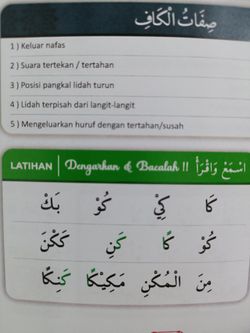 صِفَاتُ الْكَافِ
1 ) Keluar nafas
2 ) Suara tertekan / tertahan
3 ) Posisi pangkal lidah turun
4 ) Lidah terpisah dari langit-langit
5 ) Mengeluarkan huruf dengan tertahan/susah
LATIHAN Dengarkan & Bacalah !! اسْتَمِعْ وَاقْرَأْ
كَا كِيْ كُوْ بَكْ
كُوْ كًا كَنِ كَكْنَ
مِنَ الْمُكْنِ مَكِيْكًا كَنِكًا